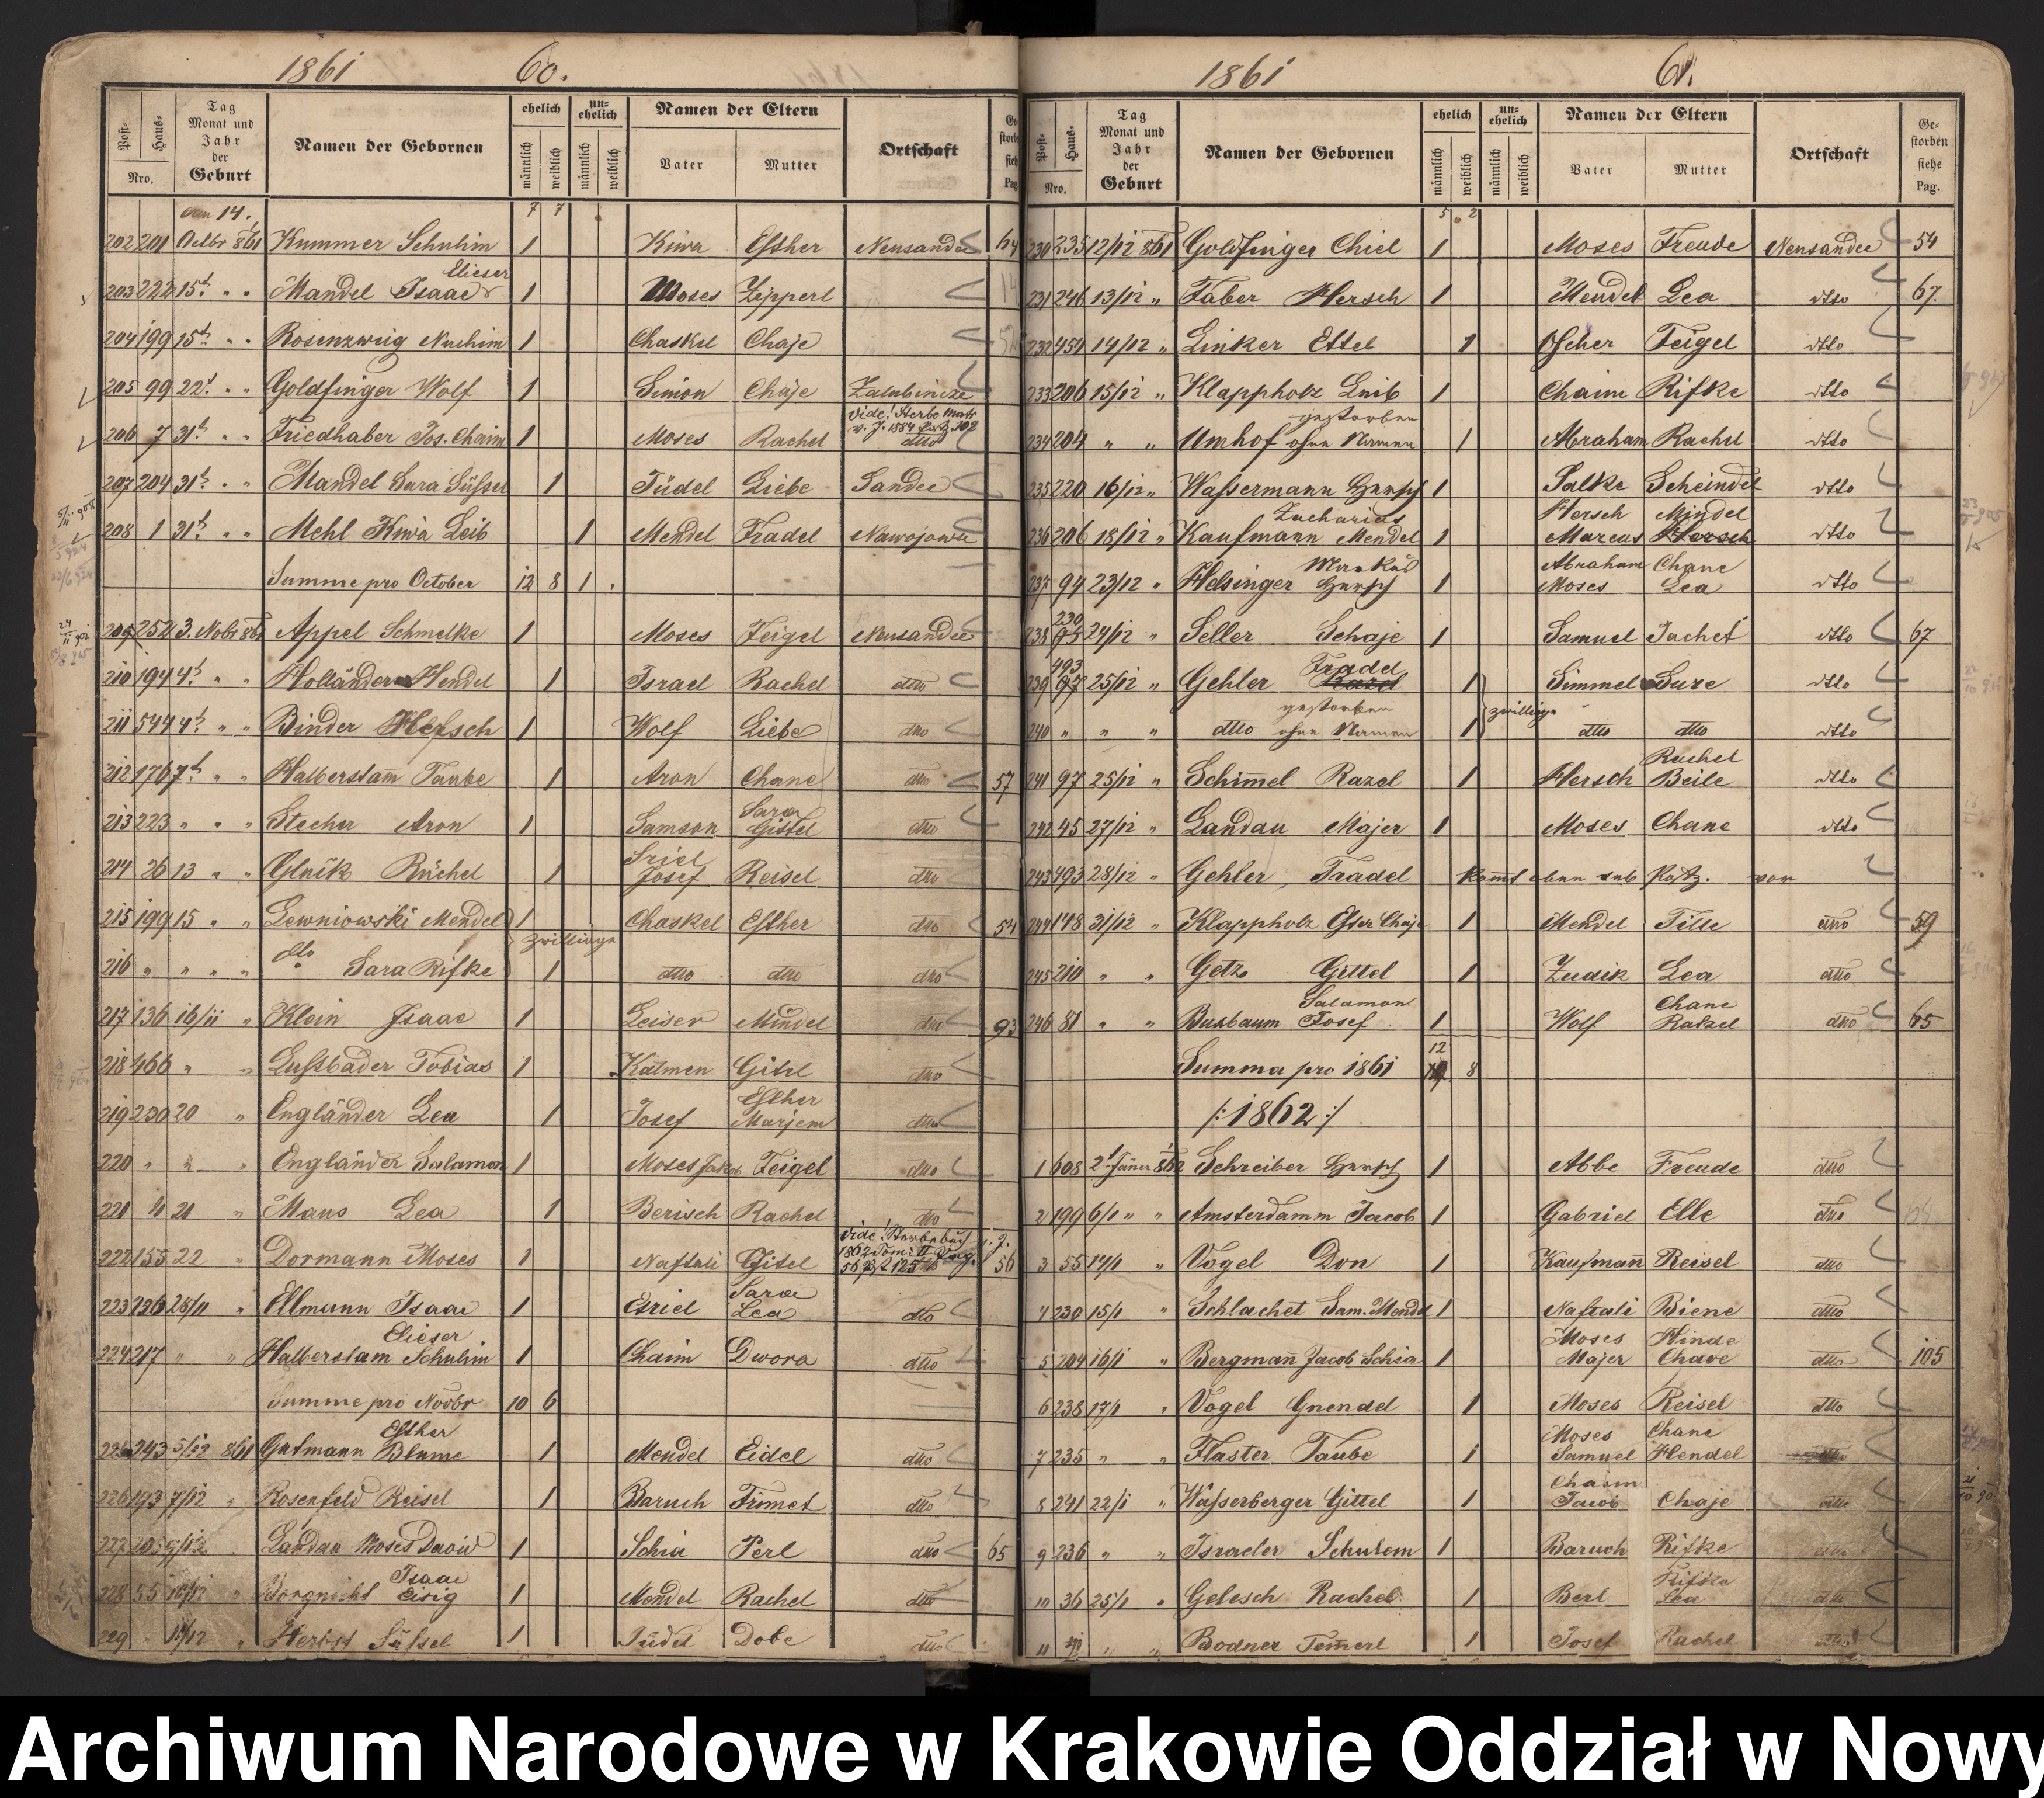 1861 60.
Post- Haus- Nro. Tag Monat und Jahr der Geburt Namen der Gebornen ehelich männlich weiblich un=ehelich männlich weiblich Namen der Eltern Vater Mutter Ortschaft
den 14. 7 7
202 201 Octbr 861 Kummer Schulim 1 Kiwa Esther Neusandec
Elieser
203 222 15t " " Mandel Isaac 1 Moses Zipperl
204 199 15t " " Rosenzweig Nuchim 1 Chaskel Chaje
205 99 22t " " Goldfinger Wolf 1 Simon Chaje Zalubincze
vide! Sterbe Matr
206 7 31t " " Friedhaber Jos. Chaim 1 Moses Rachel dtto
207 204 31t " " Mandel Sara Süssel 1 Jüdel Liebe Sandec
208 1 31t " " Mehl Kiwa Leib 1 Mendel Fradel Nawojowa
Summe pro October 12 8 1 .
209 252 3. Nobr 861 Appel Schmelke 1 Moses Feigel Neusandec
210 194 4t " " Holländer Hendel 1 Israel Rachel dtto
211 544 4t " " Binder Hersch 1 Wolf Liebe dtto
212 176 7t " " Halberstam̄ Taube 1 Aron Chane dtto 57
Sara
213 223 " " " Stecher Aron 1 Samson Gittel dtto
Sriel
214 26 13 " " Gluck Rüchel 1 Josef Reisel dtto
215 199 15 " " Lewniowski Mendel 1 Chaskel Esther dtto 54
Zwillinge
216 " " " " dto Sara Rifke 1 dtto dtto dtto
217 136 16/11 " Klein Isaac 1 Leiser Mindel dtto 93
218 466 " " Lussbader Tobias 1 Kalmen Gitel dtto
Esther
219 230 20 " Engländer Lea 1 Josef Marjem dtto
220 " " " Engländer Salamon 1 Moses Jakob Feigel dtto
221 4 21 " Maus Lea 1 Berisch Rachel dtto
vide! Sterbebuch
222 155 22 " Dormann Moses 1 Naftali Gitel 56
Sara
223 236 28/11 " Ellmann Isaac 1 Esriel Lea dto
Elieser
224 217 " " Halberstam Schulim 1 Chaim Dwora dtto
Summe pro Novbr 10 6
Esther
225 243 5/12 861 Gutmann Blume 1 Mendel Eidel dtto
226 193 7/12 " Rosenfeld Reisel 1 Baruch Frimet dtto
227 205 9/12 Landau Moses David 1 Schia Perl dtto 65
Isaac
228 55 10/12 " Eisig 1 Mendel Rachel dtto
229 11/12 " Herbst Süssel 1 Jüdel Dobe dtto
1861 61.
Post- Haus- Nro. Tag Monat und Jahr der Geburt Namen der Gebornen ehelich männlich weiblich un=ehelich männlich weiblich Namen der Eltern Vater Mutter Ortschaft Ge-storben siehe Pag.
5 2
230 235 12/12 861 Goldfinger Chiel 1 Moses Freude Neusandec 54
231 246 13/12 " Faber Hersch 1 Mendel Lea dtto 67
232 454 14/12 " Linker Ettel 1 Oscher Feigel dtto
233 206 15/12 " Klappholz Leib 1 Chaim Rifke dtto
gestorben
234 204 " " Umhof ohne Namen 1 Abraham Rachel dtto
235 220 16/12 " Wassermann Hersch 1 Salke Scheindel dtto
Zacharias Hersch Mindel
236 206 18/12 " Kaufmann Mendel 1 Marcus Hersch dtto
Markus Abraham Chane
237 94 23/12 " Helsinger Hersch 1 Moses Lea dtto
230
238 95 24/12 " Seller Schaje 1 Samuel Jachet dtto 67
493 Fradel
239 97 25/12 " Gehler Razel 1 Simmel Sure dtto
gestorben Zwillinge
240 " " " dtto ohne Namen 1 dtto dtto dtto
Rachel
241 97 25/12 " Schim̄el Razel 1 Hersch Beile dtto
242 45 27/12 " Landau Majer 1 Moses Chane dtto
243 493 28/12 " Gehler Fradel kom̄t oben sub Postz. vor
244 148 31/12 " Klappholz Ester Chaje 1 Mendel Tille dtto 59
245 210 " " Getz Gittel 1 Zudik Lea dtto
Salamon Chane
246 81 " " Buxbaum Josef 1 Wolf Rakzel dtto 65
12
Summa pro 1861 8
/:1862:/
1 608 2t Jäner 862 Schreiber Hersch 1 Abbe Freude dtto
2 199 6/1 " " Amsterdamm Jacob 1 Gabriel Elle dtto
3 55 14/1 " Vogel Don 1 Kaufman̄ Reisel dtto
4 230 15/1 " Schlachet Sam. Mendel 1 Naftali Biene dtto
Moses Hinde
5 204 16/1 " Bergman̄ Jacob Schia 1 Majer Chave dtto 105
6 238 17/1 " Vogel Gnendel 1 Moses Reisel dtto
Moses Chane
7 235 " " Flaster Taube 1 Samuel Hendel dtto
Chaim
8 241 22/1 " Wasserberger Gittel 1 Jacob Chaje dtto
9 236 " " Israeler Schulem 1 Baruch Rifke dtto
Rifke
10 36 25/1 " Gelesch Rachel 1 Berl Lea dtto
11 " " Bodner Tem̄erl 1 Josef Rachel dtto
Archiwum Narodowe w Krakowie Oddział w Nowy